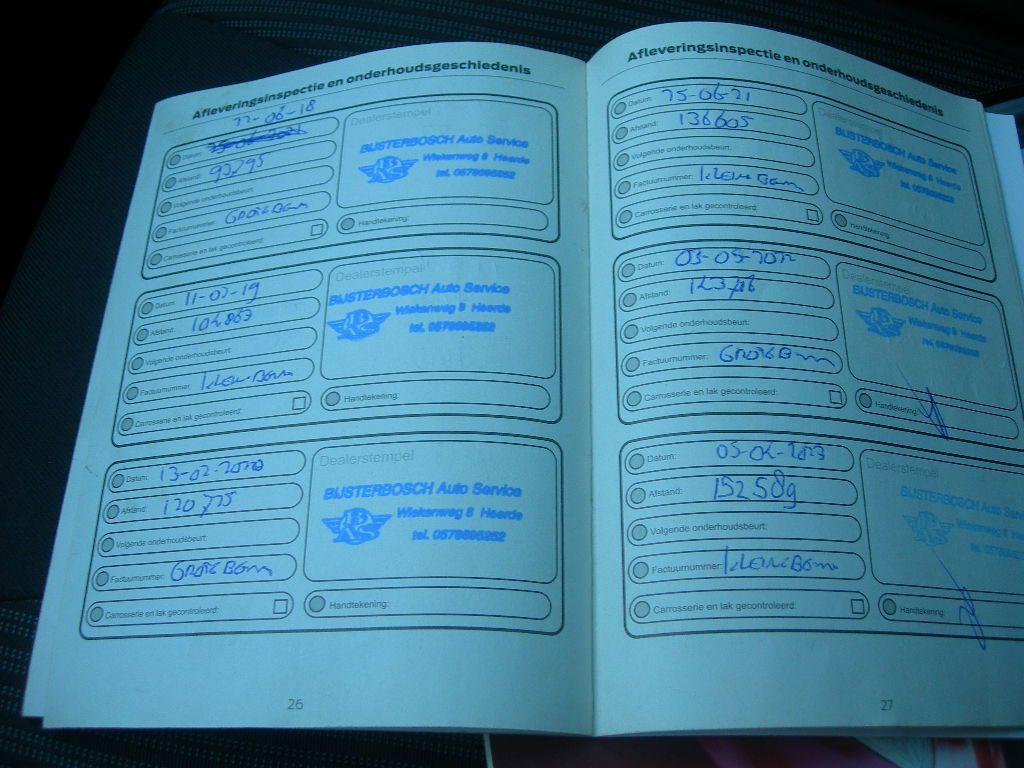 Afleveringsinspectie en onderhoudsgeschiedenis
22-06-18
Datum:
Afstand: 93295
Volgende onderhoudsbeurt:
Factuurnummer: Grote Beurt
Carrosserie en lak gecontroleerd:
Dealerstempel
BIJSTERBOSCH Auto Service
Wiekenweg 8 Heerde
tel. 0578695252
Handtekening:
Datum: 11-07-19
Afstand: 104863
Volgende onderhoudsbeurt:
Factuurnummer: Kleine Beurt
Carrosserie en lak gecontroleerd:
Dealerstempel
BIJSTERBOSCH Auto Service
Wiekenweg 8 Heerde
tel. 0578695252
Handtekening:
Datum: 13-02-2020
Afstand: 120775
Volgende onderhoudsbeurt:
Factuurnummer: Grote Beurt
Carrosserie en lak gecontroleerd:
Dealerstempel
BIJSTERBOSCH Auto Service
Wiekenweg 8 Heerde
tel. 0578695252
Handtekening:
26
Afleveringsinspectie en onderhoudsgeschiedenis
Datum: 25-06-21
Afstand: 136605
Volgende onderhoudsbeurt:
Factuurnummer: Kleine Beurt
Carrosserie en lak gecontroleerd:
Dealerstempel
BIJSTERBOSCH Auto Service
Wiekenweg 8 Heerde
tel. 0578695252
Handtekening:
Datum: 03-05-2022
Afstand:
Volgende onderhoudsbeurt:
Factuurnummer: Grote Beurt
Carrosserie en lak gecontroleerd:
Dealerstempel
BIJSTERBOSCH Auto Service
Wiekenweg 8 Heerde
tel. 0578695252
Handtekening:
Datum: 05-04-2023
Afstand: 152589
Volgende onderhoudsbeurt:
Factuurnummer: Kleine Beurt
Carrosserie en lak gecontroleerd:
Dealerstempel
BIJSTERBOSCH Auto
Wiekenweg 8
tel. 0578695252
Handtekening:
27